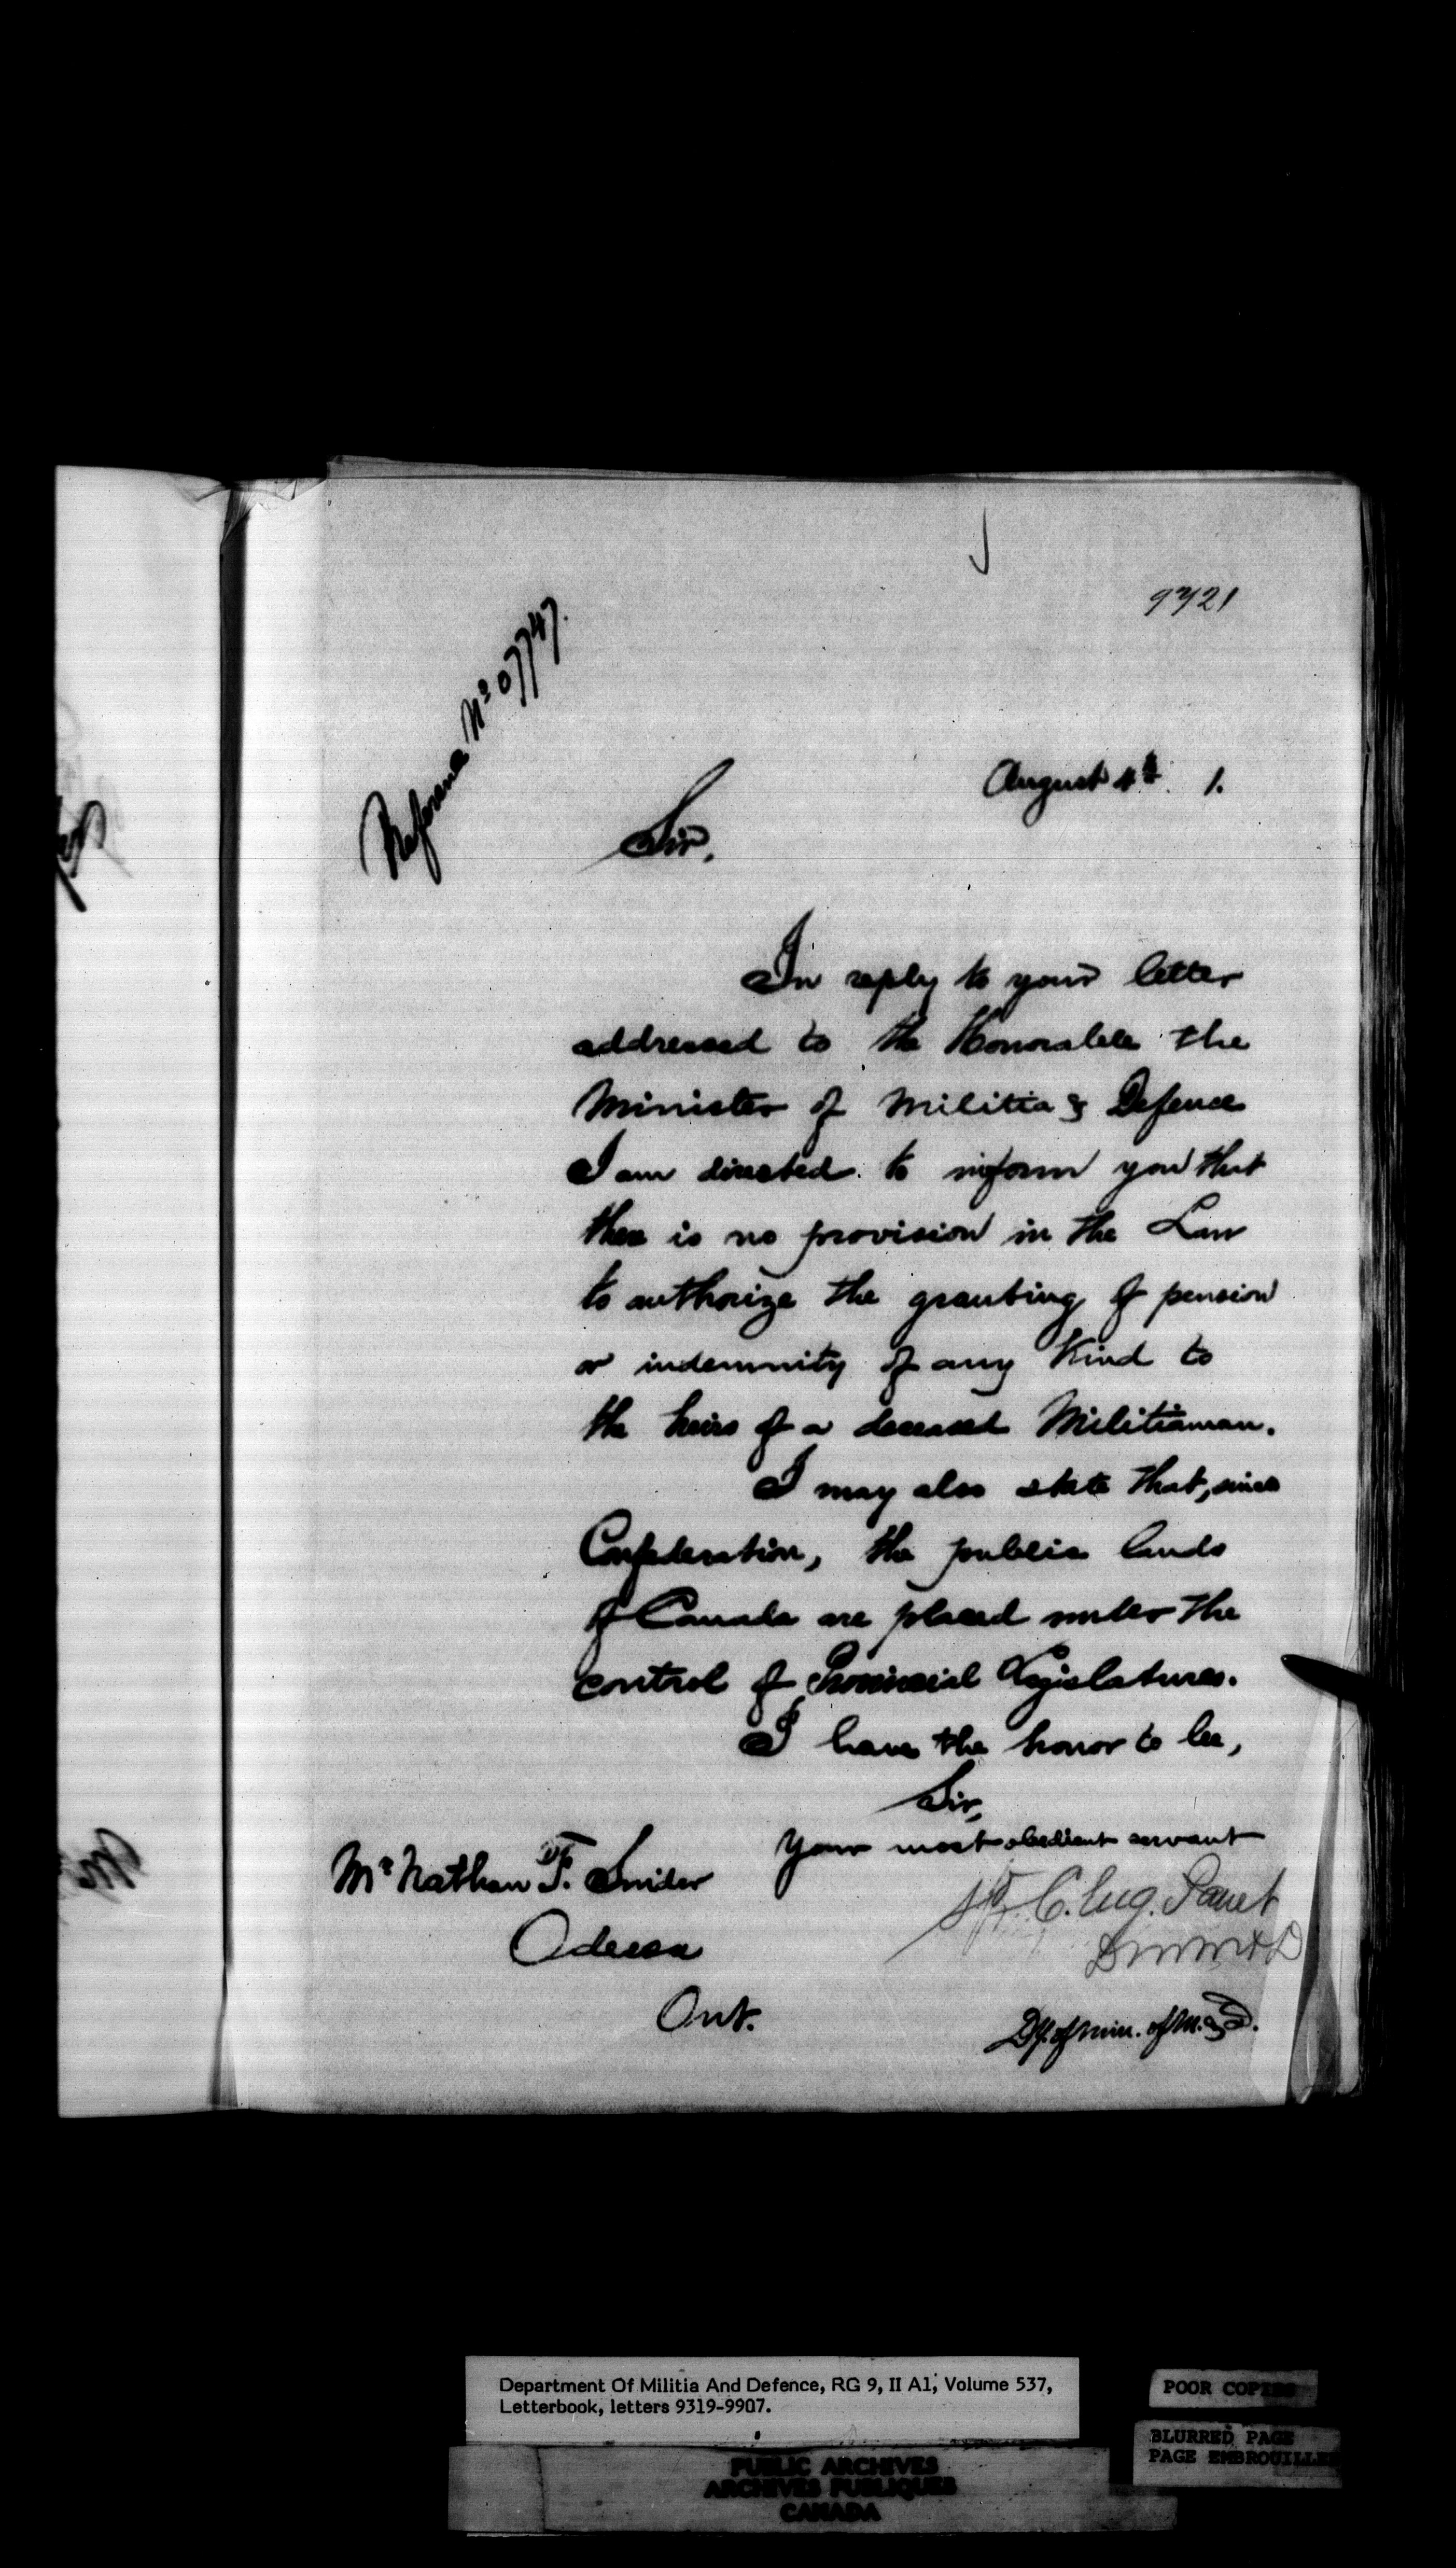 9321
Reference No 07747.
August 4th 1.
Sir,
In reply to your letter
addressed to the Honorable the
Minister of Militia & Defence
I am directed to inform you that
there is no provision in the Law
to authorize the granting of pension
or indemnity of any kind to
the heirs of a deceased Militiaman.
I may also state that, since
Confederation, the public lands
of Canada are placed under the
control of Provincial Legislatures.
I have the honor to be,
Sir,
Your most obedient servant
Mr Nathan F. Snider
Odessa
Ont.
C. Eug. Panet
DMM&D
Dy. of Min. of M. & D.
Department Of Militia And Defence, RG 9, II A1, Volume 537,
Letterbook, letters 9319-9907.
POOR COPIES
BLURRED PAGE
PAGE EMBROUILLEE
PUBLIC ARCHIVES
ARCHIVES PUBLIQUES
CANADA